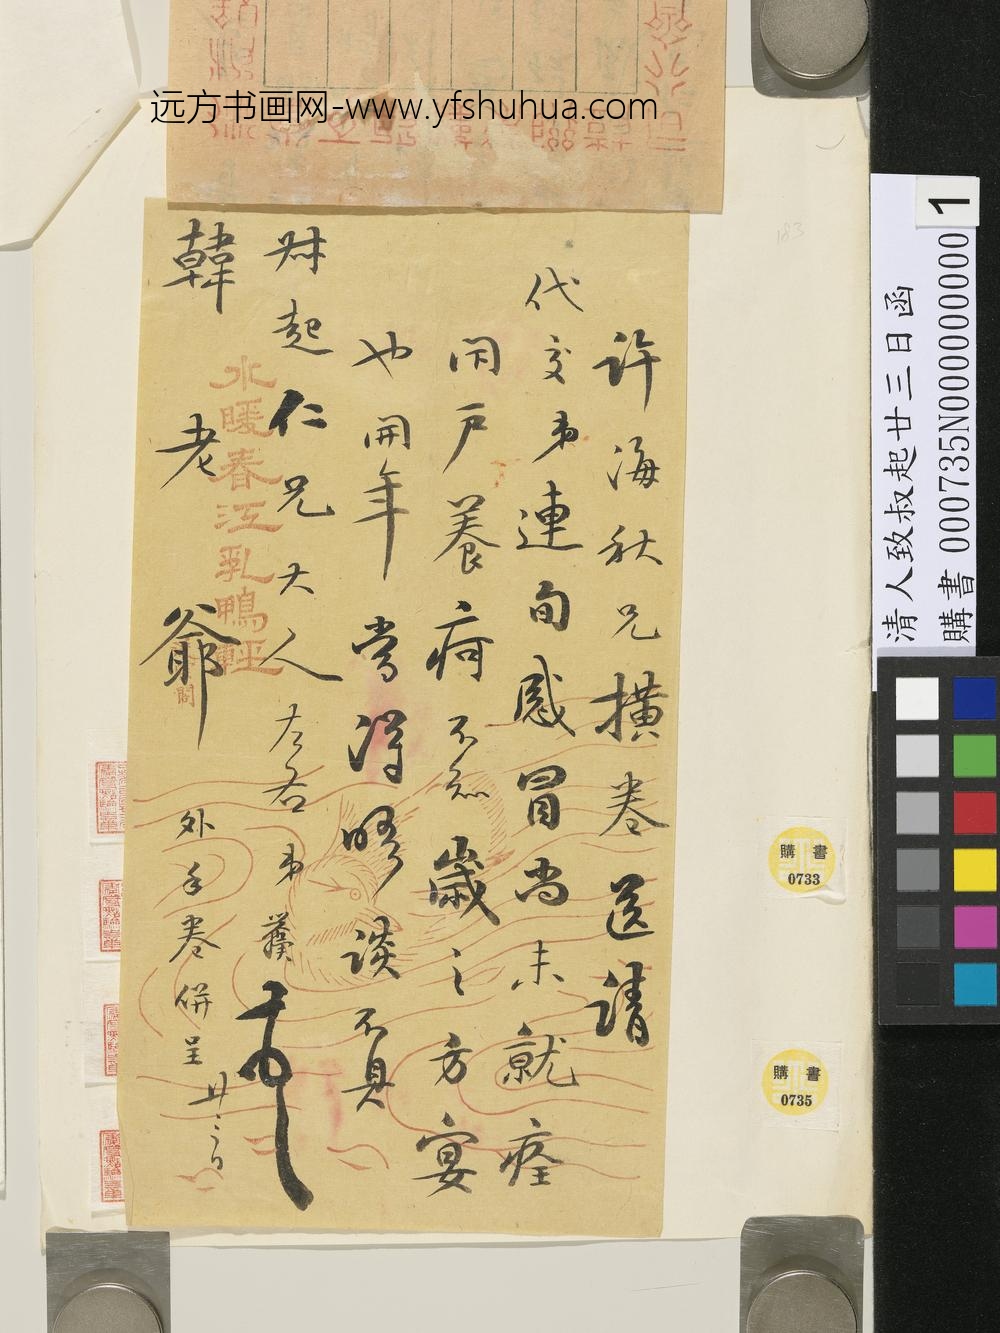 远方书画网-www.yfshuhua.com
许海秋兄橫卷送請
代交弟連旬感冒尚未就痊
閉戶養疴不急歲之方宴
也開年當得晤談不具
叔起仁兄大人左右弟龔
韓老爺
外手卷併呈廿三日
水暖春江乳鴨輕
清人致叔起廿三日函
購書 000735N000000000
1
183
購書
0733
購書
0735